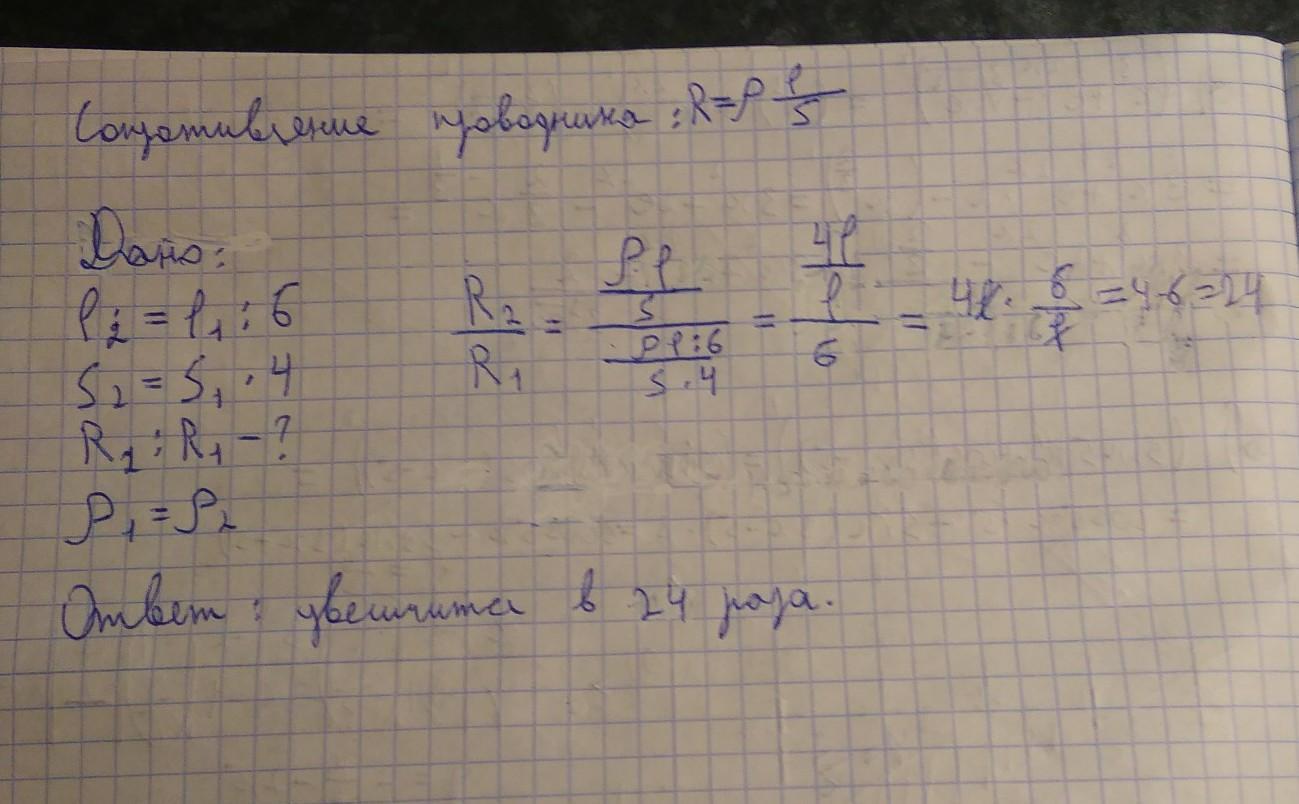 Сопротивление проводника : R = ρ l/S
Дано:
l₂ = l₁ : 6
S₂ = S₁ · 4
R₂ : R₁ – ?
ρ₁ = ρ₂
R₂/R₁ = (ρl/S)/(ρl:6/S·4) = (4l)/(l/6) = 4l · 6/l = 4·6 = 24
Ответ : увеличится в 24 раза.